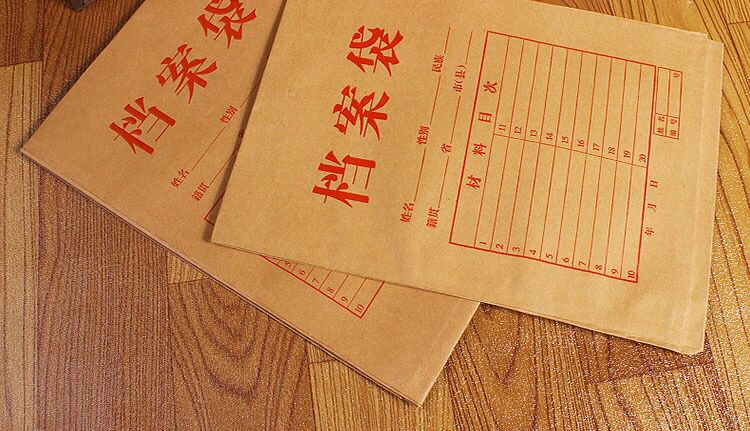 档案袋
姓名 性别 民族
籍贯 省 市(县)
材料目次
1 11
2 12
3 13
4 14
5 15
6 16
7 17
8 18
9 19
10 20
姓名
编号 号
年 月 日
档案袋
姓名 性别
籍贯
6
7
8
9
10